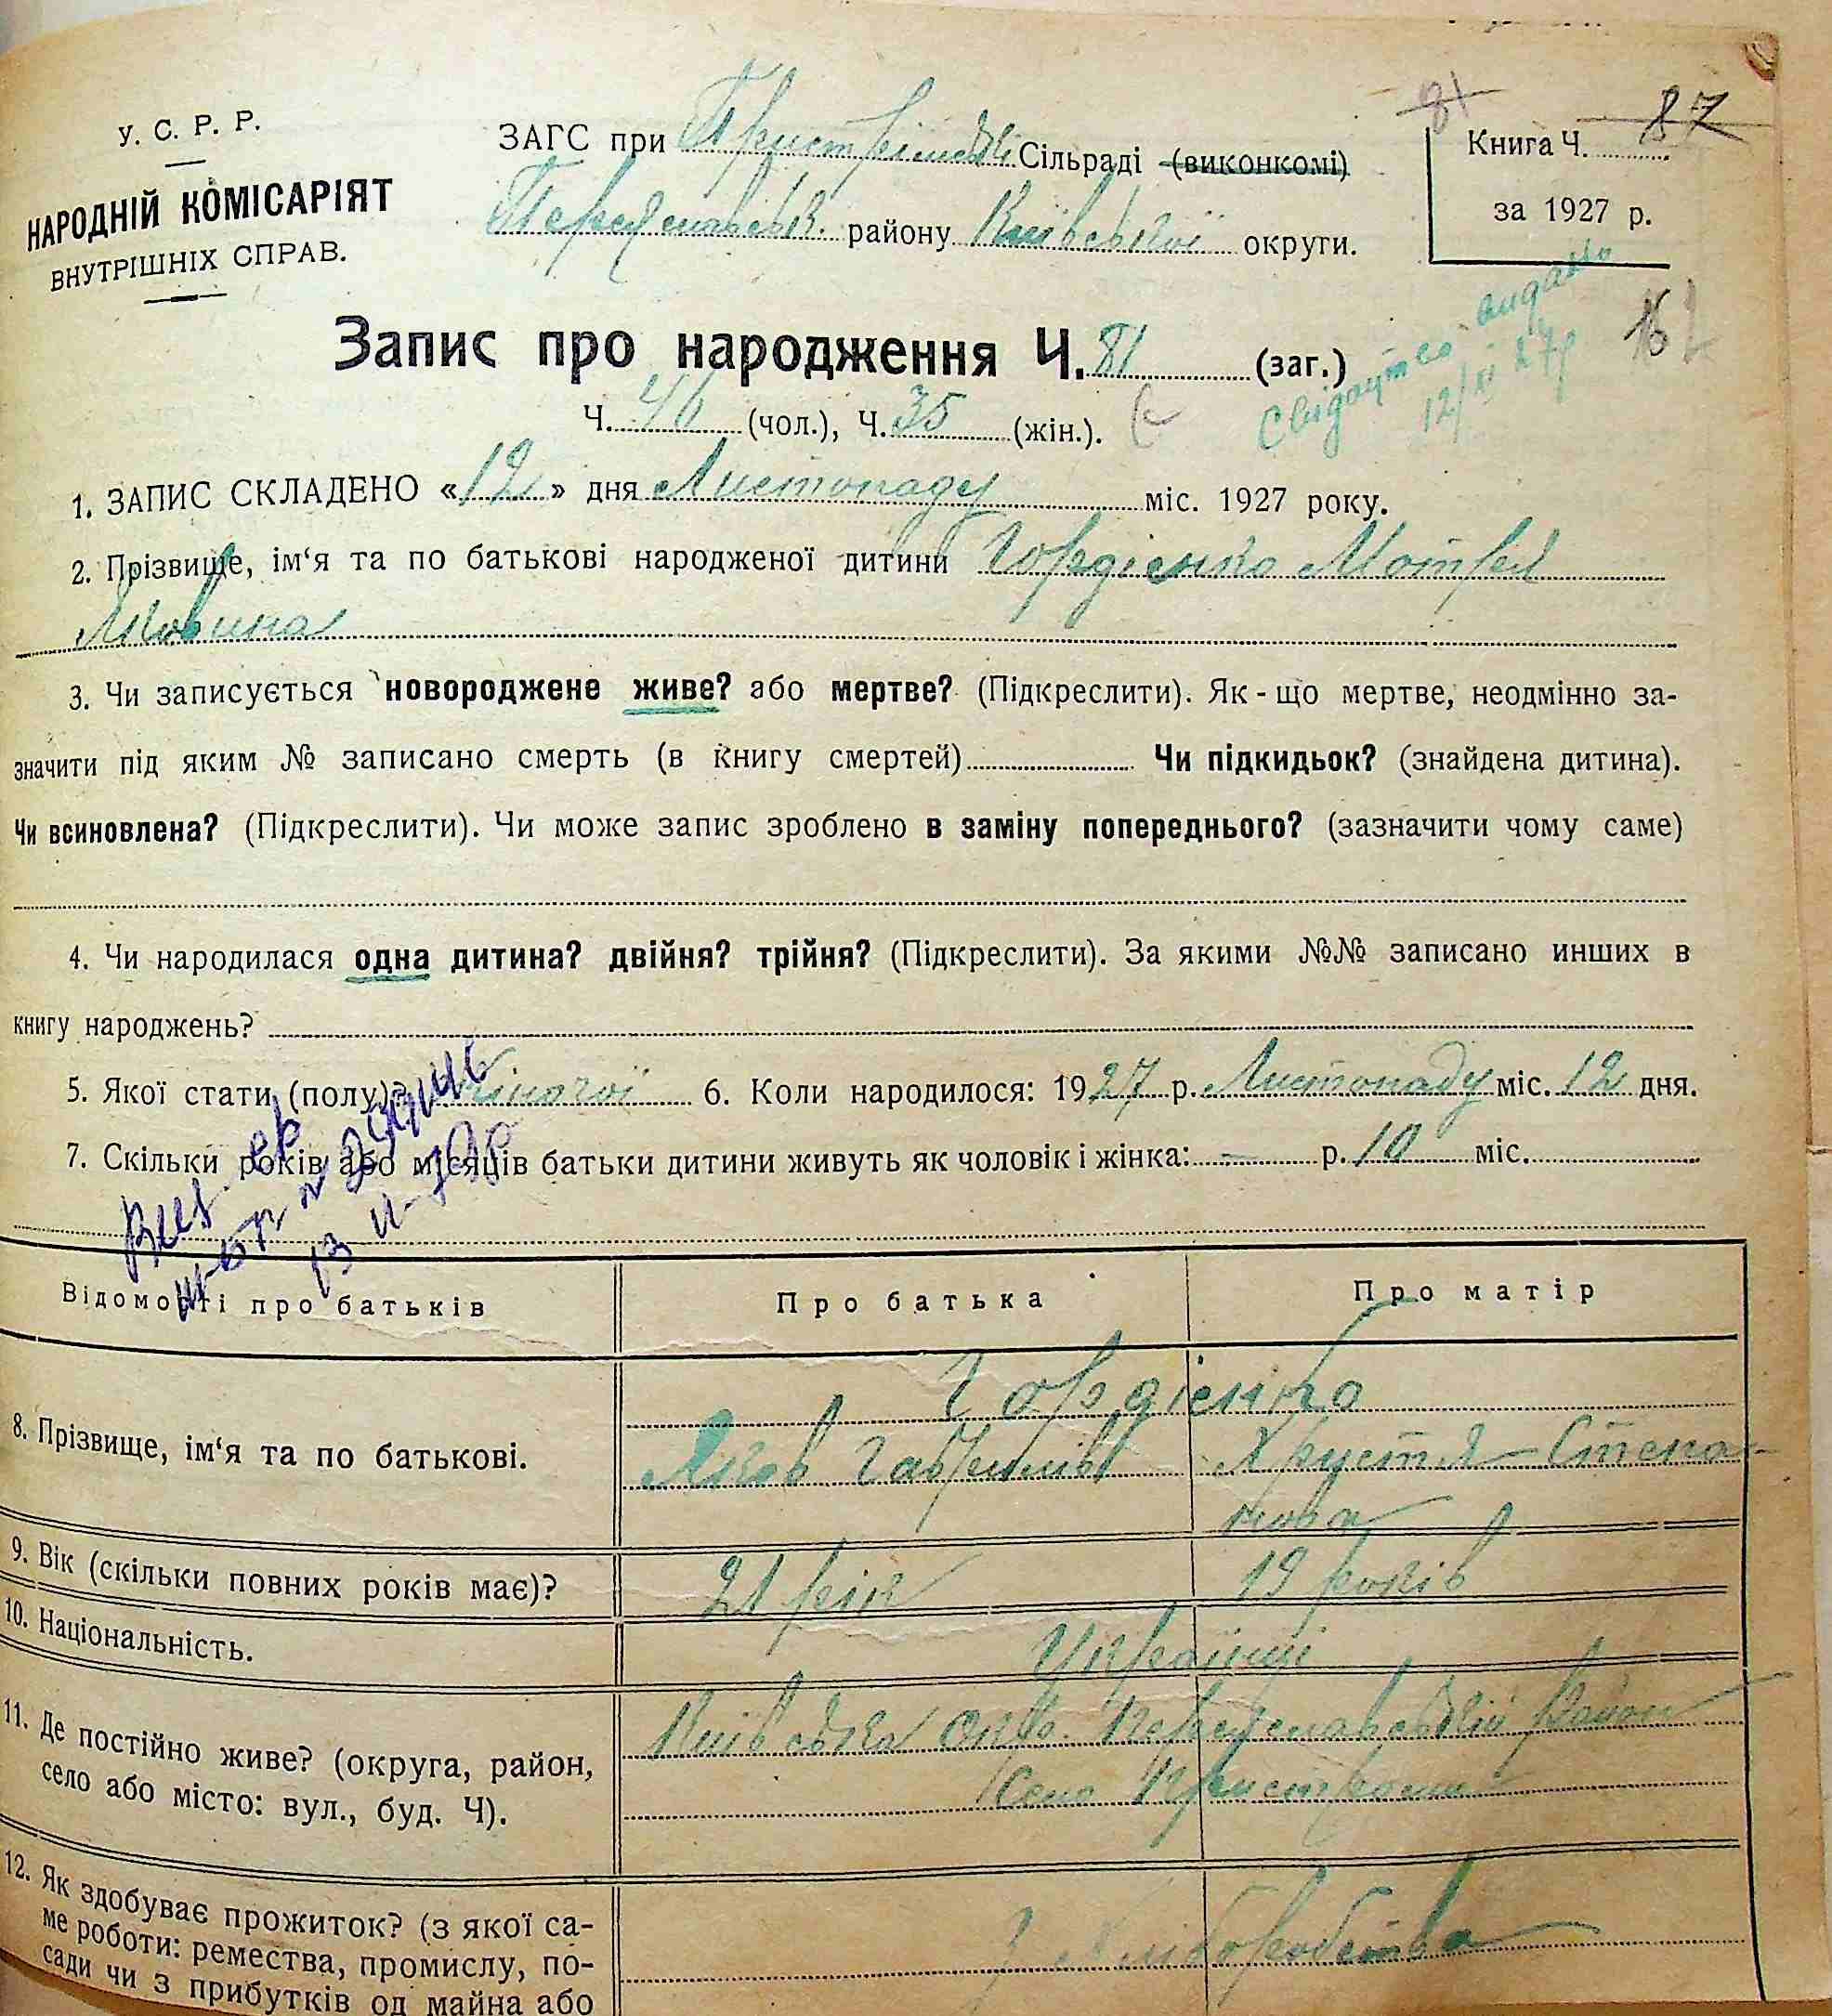 У. С. Р. Р.
НАРОДНІЙ КОМІСАРІЯТ
ВНУТРІШНІХ СПРАВ.
81
ЗАГС при Пристромській Сільраді (виконкомі)
Переяславськ. району Київської округи.
Книга Ч. 87
за 1927 р.
Запис про народження Ч. 81 (заг.)
Ч. 46 (чол.), Ч. 35 (жін.).
Свідоцтво видано
12/XI 27р
1. ЗАПИС СКЛАДЕНО «12» дня Листопаду міс. 1927 року.
2. Прізвище, ім‘я та по батькові народженої дитини Гордієнко Мотря
Яковина
3. Чи записується новороджене живе? або мертве? (Підкреслити). Як - що мертве, неодмінно за-
значити під яким № записано смерть (в книгу смертей) Чи підкидьок? (знайдена дитина).
Чи всиновлена? (Підкреслити). Чи може запис зроблено в заміну попереднього? (зазначити чому саме)
4. Чи народилася одна дитина? двійня? трійня? (Підкреслити). За якими №№ записано инших в
книгу народжень?
5. Якої стати (полу)? жіночої 6. Коли народилося: 1927 р. Листопаду міс. 12 дня.
7. Скільки років або місяців батьки дитини живуть як чоловік і жінка: – р. 10 міс.
Відомості про батьків Про батька Про матір
8. Прізвище, ім‘я та по батькові.
Гордієнко
Яков Гаврилів Христя Степа-
нова
9. Вік (скільки повних років має)? 21 рік 19 років
10. Національність. Українці
11. Де постійно живе? (округа, район,
село або місто: вул., буд. Ч).
Київська окр. Переяславський район
село Пристроми
12. Як здобуває прожиток? (з якої са-
ме роботи: ремества, промислу, по-
сади чи з прибутків од майна або
З хліборобства